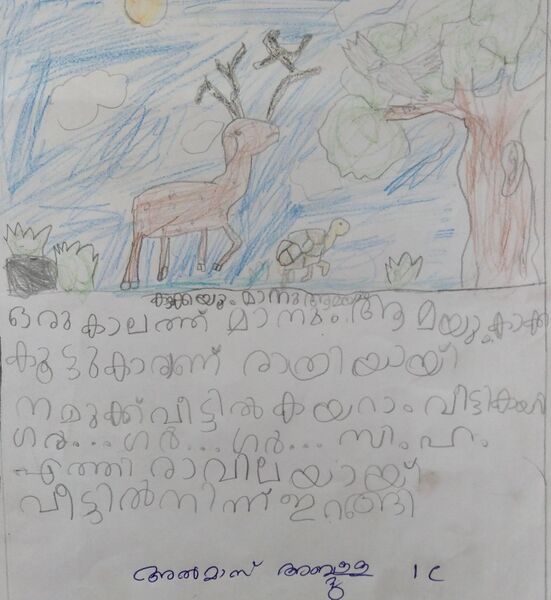 കാക്കയും മാനും ആമയും
ഒരു കാലത്ത് മാനും ആമയു കാക്ക
കൂട്ടുകാരണ് രാത്രിയായി
നമുക്ക് വീട്ടിൽ കയറാം വീട്ടികയറി
ഗർ... ഗർ... ഗർ... സിംഹം
എത്തി രാവിലയായ്
വീട്ടിൽ നിന്ന് ഇറങ്ങി
അൽമാസ് അബ്ദുള്ള 1 C